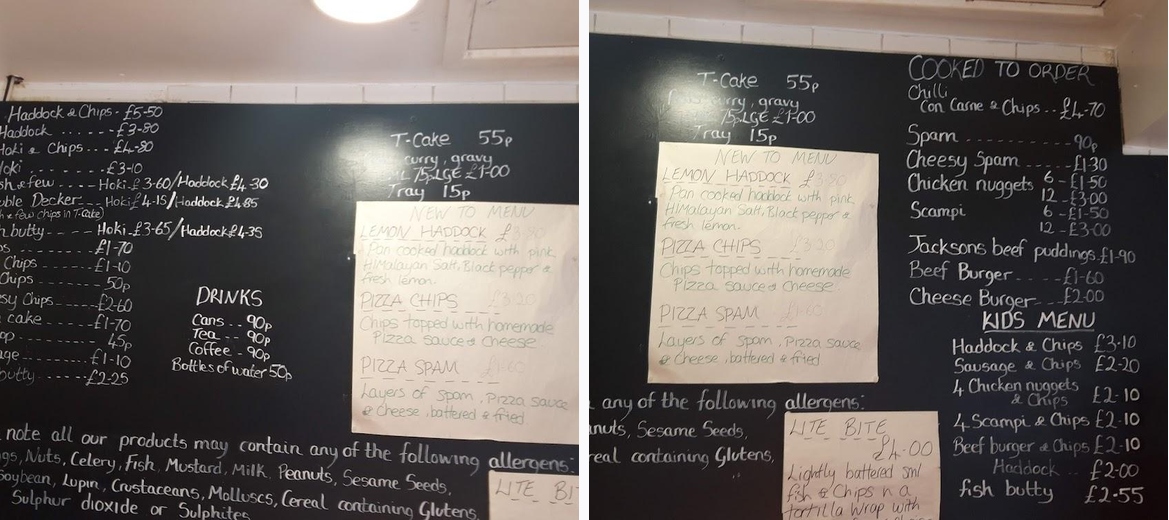 Haddock & Chips - £5-50
Haddock ...... £3-80
Hoki & Chips... £4-80
Hoki ...... £3-10
& few ---- Hoki £3-60/Haddock £4-30
Decker -- Hoki £4-15/Haddock £4-85
& few chips in T-Cake)
butty ---- Hoki £3-65/Haddock £4-35
£1-70
Chips ------ £1-10
Chips ------ 50p
Chips ------ £2-60
cake ------ £1-70
45p
£1-10
butty ------ £2-25
DRINKS
Cans .. 90p
Tea -- 90p
Coffee - 90p
Bottles of water 50p
T-Cake 55p
curry, gravy
75-LGE £1-00
Tray 15p
NEW TO MENU
LEMON HADDOCK
Pan cooked haddock with pink
HIMalayan Salt, Black pepper &
fresh lemon.
PIZZA CHIPS £3-20
Chips topped with homemade
Pizza sauce & Cheese
PIZZA SPAM
Layers of spam, Pizza sauce
& Cheese, battered & fried
note all our products may contain any of the following allergens:
Nuts, Celery, Fish, Mustard, Milk, Peanuts, Sesame Seeds,
Soybean, Lupin, Crustaceans, Molluscs, Cereal containing Glutens,
Sulphur dioxide or Sulphites
LITE
T-Cake 55p
curry, gravy
75-LGE £1-00
Tray 15p
NEW TO MENU
LEMON HADDOCK
Pan cooked haddock with pink
HIMalayan Salt, Black pepper &
fresh lemon.
PIZZA CHIPS £3-20
Chips topped with homemade
Pizza sauce & Cheese
PIZZA SPAM
Layers of spam, Pizza sauce
& Cheese, battered & fried
any of the following allergens:
Sesame Seeds,
containing Glutens,
LITE BITE
£4-00
Lightly battered sml
fish & Chips in a
tortilla wrap with
COOKED TO ORDER
Chilli
Con Carne & Chips .. £4-70
Spam ---------- 90p
Cheesy Spam ----- £1-30
Chicken nuggets 6 - £1-50
12 - £3-00
Scampi 6 - £1-50
12 - £3-00
Jacksons beef puddings £1-90
Beef Burger ---- £1-60
Cheese Burger --- £2-00
KIDS MENU
Haddock & Chips £3-10
Sausage & Chips £2-20
4 Chicken nuggets
& Chips £2-10
4 Scampi & Chips £2-10
Beef burger & Chips £2-10
Haddock .. £2-00
fish butty £2-55